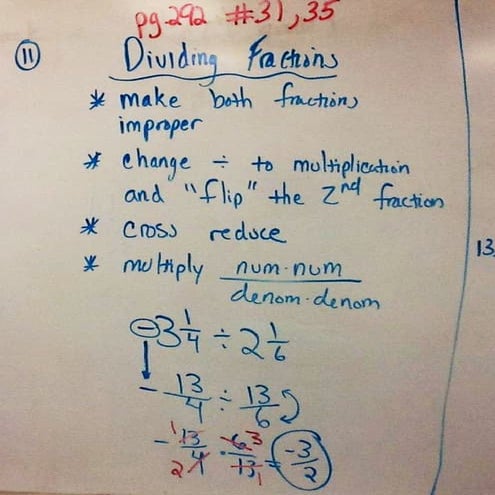 pg 292 #31, 35
11
Dividing Fractions
* make both fractions
improper
* change ÷ to multiplication
and "flip" the 2nd fraction
* cross reduce
* multiply num·num
denom·denom
-3 1/4 ÷ 2 1/6
- 13/4 ÷ 13/6
- 13/4 · 6/13 = -3/2
1 3
2 1
13